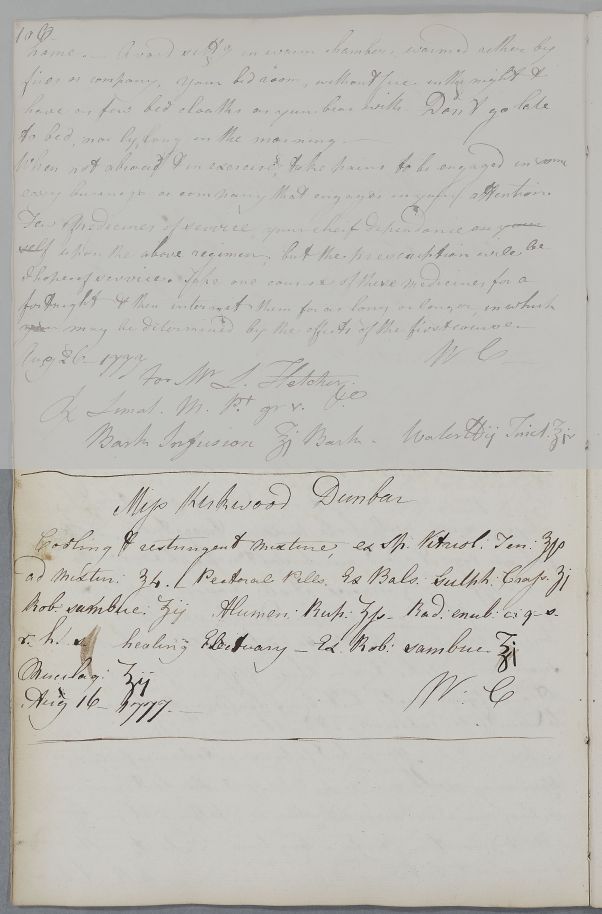 home. — Avoid sitting in warm chambers, warmed either by
fires or company, your bed room, without fire in the night &
have as few bed cloaths as you can bear with. Don't go late
to bed, nor ly long in the morning —
When not abroad & in exercise, take pains to be engaged in some
easy business or company that engages in your attention
Few Medicines of service, your chief dependance on your
self upon the above regimen, but the prescription will be
I hope of service. Take one course of these medicines for a
fortnight & then intermit them for as long or longer, in which
may be determined by the effects of the first course —
Aug 26 — 1777 W C —
For Mr L. Fletcher.
℞ Limat. M. Pt gr v.
Bark Infusion ʒj Bark. Water Tinct.
Miss Kirkwood Dunbar
Cooling & restringent mixture, ex Sp. Vitriol. Ten: ʒſs
ad mixtur. ℥4. / Pectoral Pills. Ex Bals. Sulph. Crass. ʒj
Rob sambuc. ʒij Alumen: Rup. ʒſs — Rad: enul: c: q — s.
healing Electuary — Ex Rob: sambuc. ℥j
Mucilag: ʒij
Aug 16 — 1777. — W. C